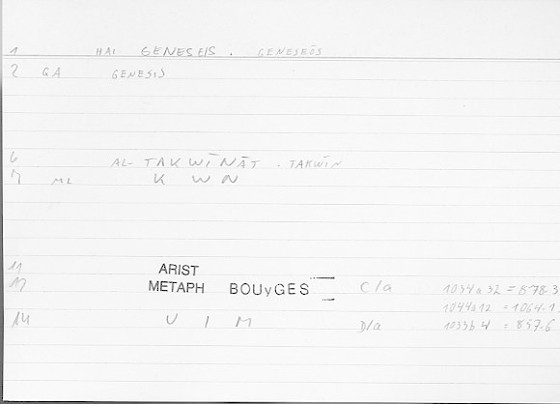 1 HAI GENESEIS . GENESEŌS
2 GA GENESIS
6 AL- TAKWĪNĀT . TAKWĪN
7 ML K W N
11 ARIST
METAPH BOUyGES C/a 1034a32 = 878.3
1044a12 = 1064.1
14 U I M D/a 1033b4 = 857.6